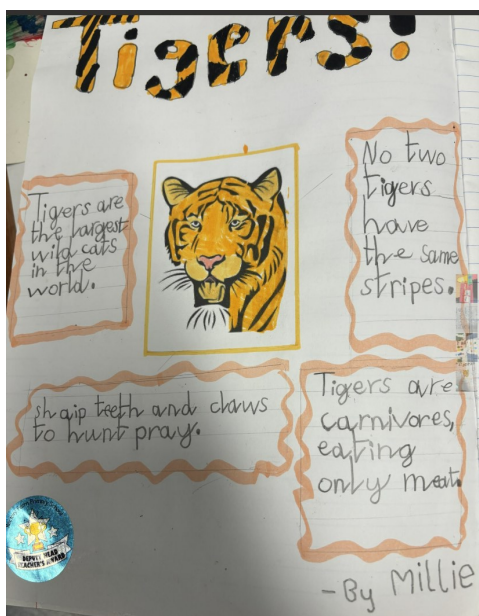 Tigers!
Tigers are
the largest
wild cats
in the
world.
No two
tigers
have
the same
stripes.
shaip teeth and claws
to hunt pray.
Tigers are
carnivores,
eating
only meat.
DEPUTY HEAD
TEACHER'S AWARD
- By Millie